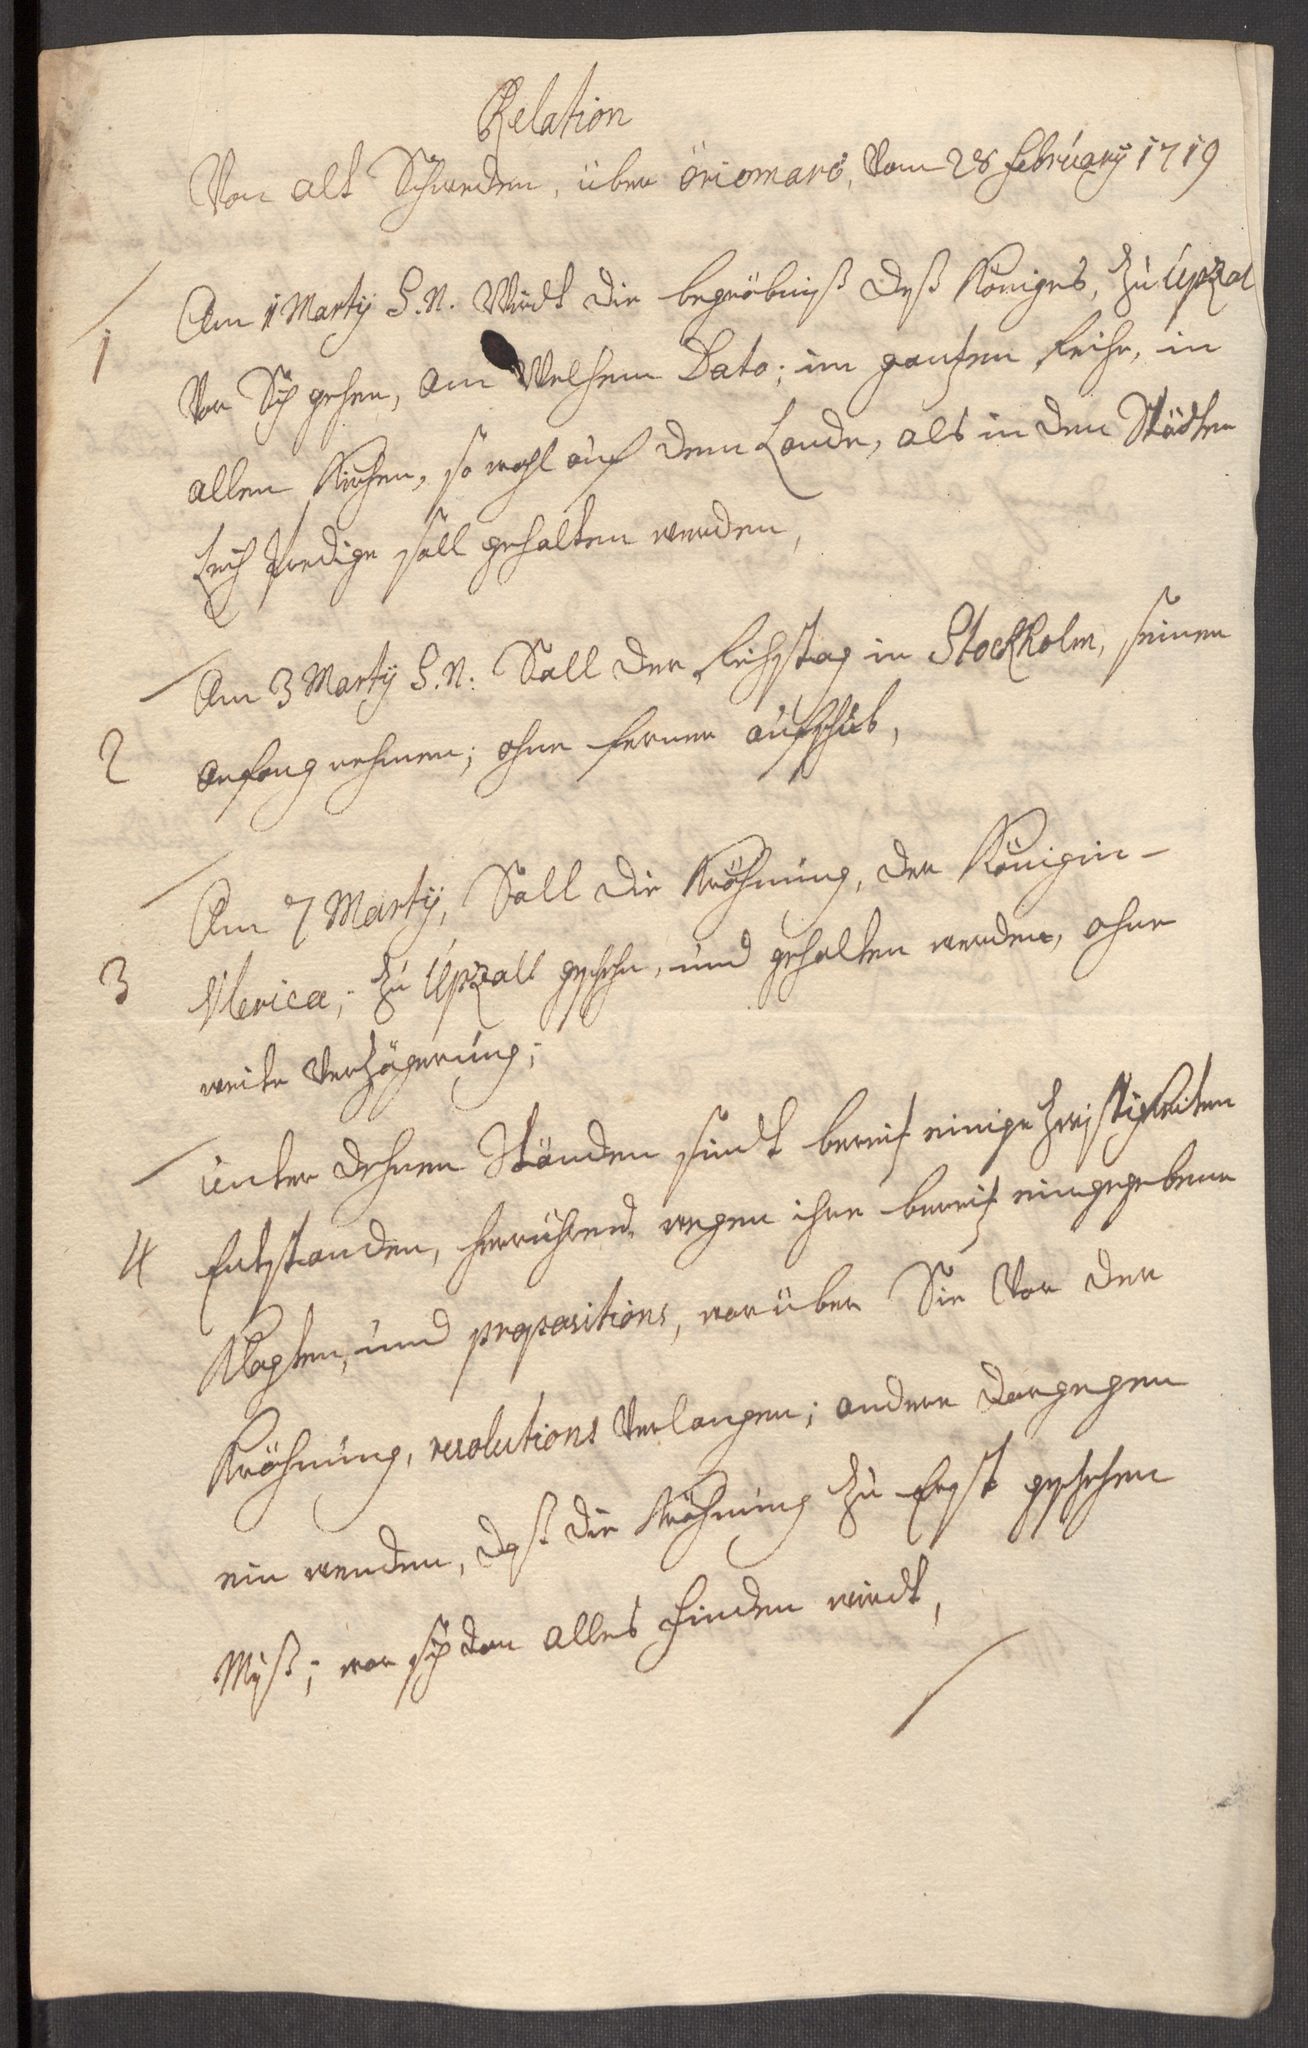 Relation
Von alt Schweden, über öriomarö, Vom 28 february 1719
1 Am 1 Martÿ S.N. Wirdt die begröbniß deß Königes, zu Upzal
Vor Sich gehen, am Welchem Dato; im gantzen Reiche, in
allen Kirchen, so wohl auf dem Lande, als in den Städten
Leich Predige soll gehalten werden,
2 Am 3 Martÿ S.N. Soll der Reichstag in Stockholm, seinen
anfang nehmen; ohne ferner aufschub,
3 Am 7 Martÿ, Soll die Kröhnung, der Königin-
Vlerica, zu Upzall geschehn, und gehalten werden, ohne
weite Verzögerung;
4 unter dehnen Ständen sindt bereitz einige Zwistigkeiten
Entstanden, herrührend, wegen ihre bereitz eingegebene
Klagten, und propositions, worüber Sie Vor der
Kröhnung, resolutions Verlangen; andere dargegen
ein wenden, daß die Kröhnung zu Erst geschehen
Muß; wor sich dan alles finden wirdt,